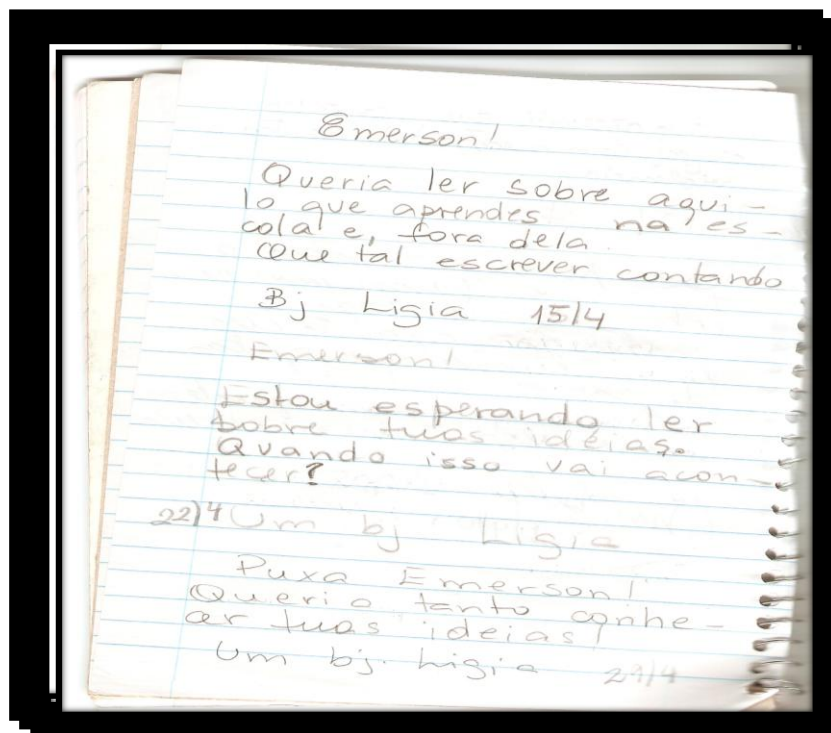 Emerson!
Queria ler sobre aqui-
lo que aprendes na es-
cola e, fora dela.
Que tal escrever contando
Bj Ligia 15/4
Emerson!
Estou esperando ler
sobre tuas idéias.
Quando isso vai acon-
tecer?
22/4 Um bj Ligia
Puxa Emerson!
Queria tanto conhe-
cer tuas ideias!
Um bj. Ligia 29/4